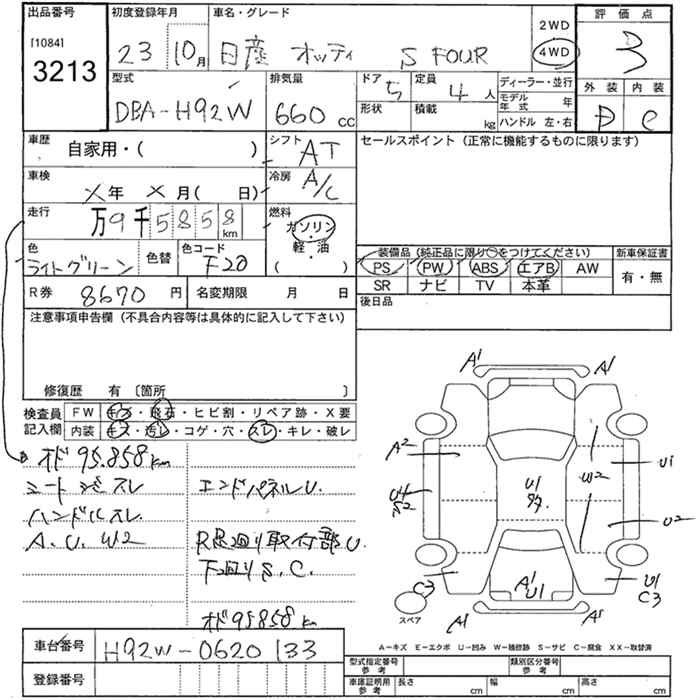 出品番号 初度登録年月 車名・グレード 2WD 評価点
[1084] 23 10月 日産 オッティ S FOUR 4WD 3
3213
型式 排気量 ドア 5 定員 4人 ディーラー・並行 外装 内装
DBA-H92W 660 CC 形状 積載 kg モデル年式 年 D C
ハンドル 左・右
車歴 自家用・( ) シフト AT セールスポイント (正常に機能するものに限ります)
車検 X年 X月( 日) 冷房 A/C
走行 万9千5858km 燃料 ガソリン・軽・油 ( )
色 ライトグリーン 色替 色コード F20
装備品 (純正品に限り○をつけてください) 新車保証書
PS PW ABS エアB AW 有・無
SR ナビ TV 本革
R券 8670円 名変期限 月 日 後日品
注意事項申告欄 (不具合内容等は具体的に記入して下さい)
修復歴 有 〔箇所 〕
検査員 FW キズ・飛石・ヒビ割・リペア跡・X要
記入欄 内装 キズ・汚レ・コゲ・穴・スレ・キレ・破レ
オド 95.858km
シートジミスレ エンドパネルU.
ハンドルスレ.
A.U.W2 R足廻り取付部U.
下廻りS.C.
オド95858km
A1 A1
A2 U1
W2
U1 S2 U1
U2
A1 U1
C3 U1 C3
スペア A1 A1
A-キズ E-エクボ U-凹み W-補修跡 S-サビ C-腐食 XX-取替済
車台番号 H92W-0620133
型式指定番号 参考 類別区分番号 参考
登録番号 車庫証明用 参考 長さ cm 幅 cm 高さ cm